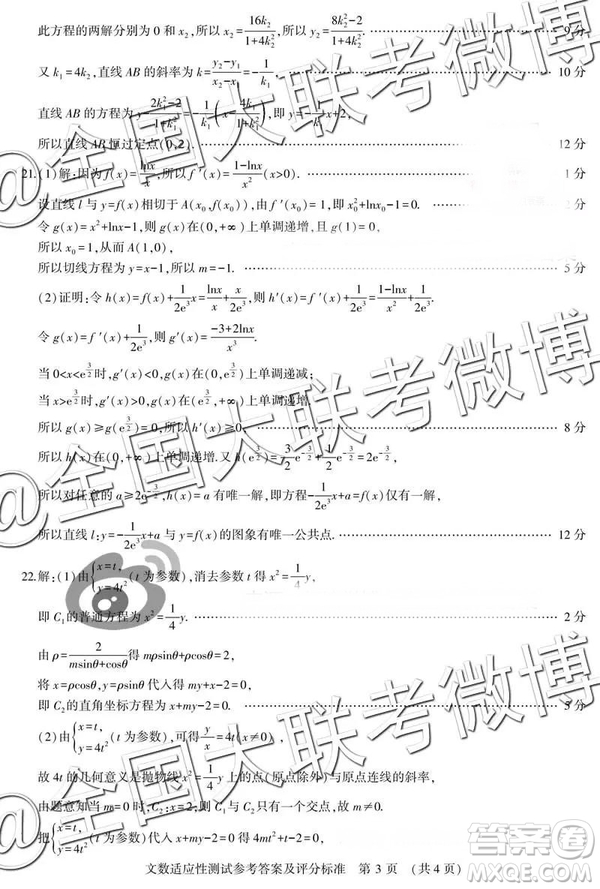 此方程的两解分别为0和x₂,所以x₂=16k₂/(1+4k₂²),所以y₂=(8k₂²-2)/(1+4k₂²). …… 9分
又k₁=4k₂,直线AB的斜率为k=(y₂-y₁)/(x₂-x₁)=-1/k₁, …… 10分
直线AB的方程为y-(2k₁²-2)/(1+k₁²)=-1/k₁(x-4k₁/(1+k₁²)),即y=-1/k₁x+2,
所以直线AB恒过定点(0,2). …… 12分
21.(1)解:因为f(x)=lnx/x,所以f′(x)=(1-lnx)/x²(x>0). …… 1分
设直线l与y=f(x)相切于A(x₀,f(x₀)),由f′(x₀)=1,即x₀²+lnx₀-1=0. …… 2分
令g(x)=x²+lnx-1,则g(x)在(0,+∞)上单调递增,且g(1)=0,
所以x₀=1,从而A(1,0),
所以切线方程为y=x-1,所以m=-1. …… 5分
(2)证明:令h(x)=f(x)+1/(2e³)x=lnx/x+x/(2e³),则h′(x)=f′(x)+1/(2e³)=(1-lnx)/x²+1/(2e³).
令g(x)=f′(x)+1/(2e³),则g′(x)=(-3+2lnx)/x³.
当0<x<e^(3/2)时,g′(x)<0,g(x)在(0,e^(3/2))上单调递减;
当x>e^(3/2)时,g′(x)>0,g(x)在(e^(3/2),+∞)上单调递增,
所以g(x)≥g(e^(3/2))=0,所以h′(x)≥0, …… 8分
所以h(x)在(0,+∞)上单调递增.又h(e^(3/2))=
所以对任意的a≥2e^(-3/2),h(x)=a有唯一解,即方程-1/(2e³)x+a=f(x)仅有一解,
所以直线l:y=-1/(2e³)x+a与y=f(x)的图象有唯一公共点. …… 12分
22.解:(1)由{x=t, y=4t²(t为参数),消去参数t得x²=1/4y,
即C₁的普通方程为x²=1/4y. …… 2分
由ρ=2/(msinθ+cosθ)得mρsinθ+ρcosθ=2,
将x=ρcosθ,y=ρsinθ代入得x+my-2=0,
即C₂的直角坐标方程为x+my-2=0. …… 5分
(2)由{x=t, y=4t²(t为参数),可得y/x=4t(x≠0),
故4t的几何意义是抛物线x²=1/4y上的点(原点除外)与原点连线的斜率,
由题意知当m=0时,C₂:x=2,则C₁与C₂只有一个交点,故m≠0.
把{x=t, y=4t²(t为参数)代入x+my-2=0得4mt²+t-2=0,
文数适应性测试参考答案及评分标准 第3页 (共4页)
@全国大联考微博
@全国大联考微博
@全国大联考微博